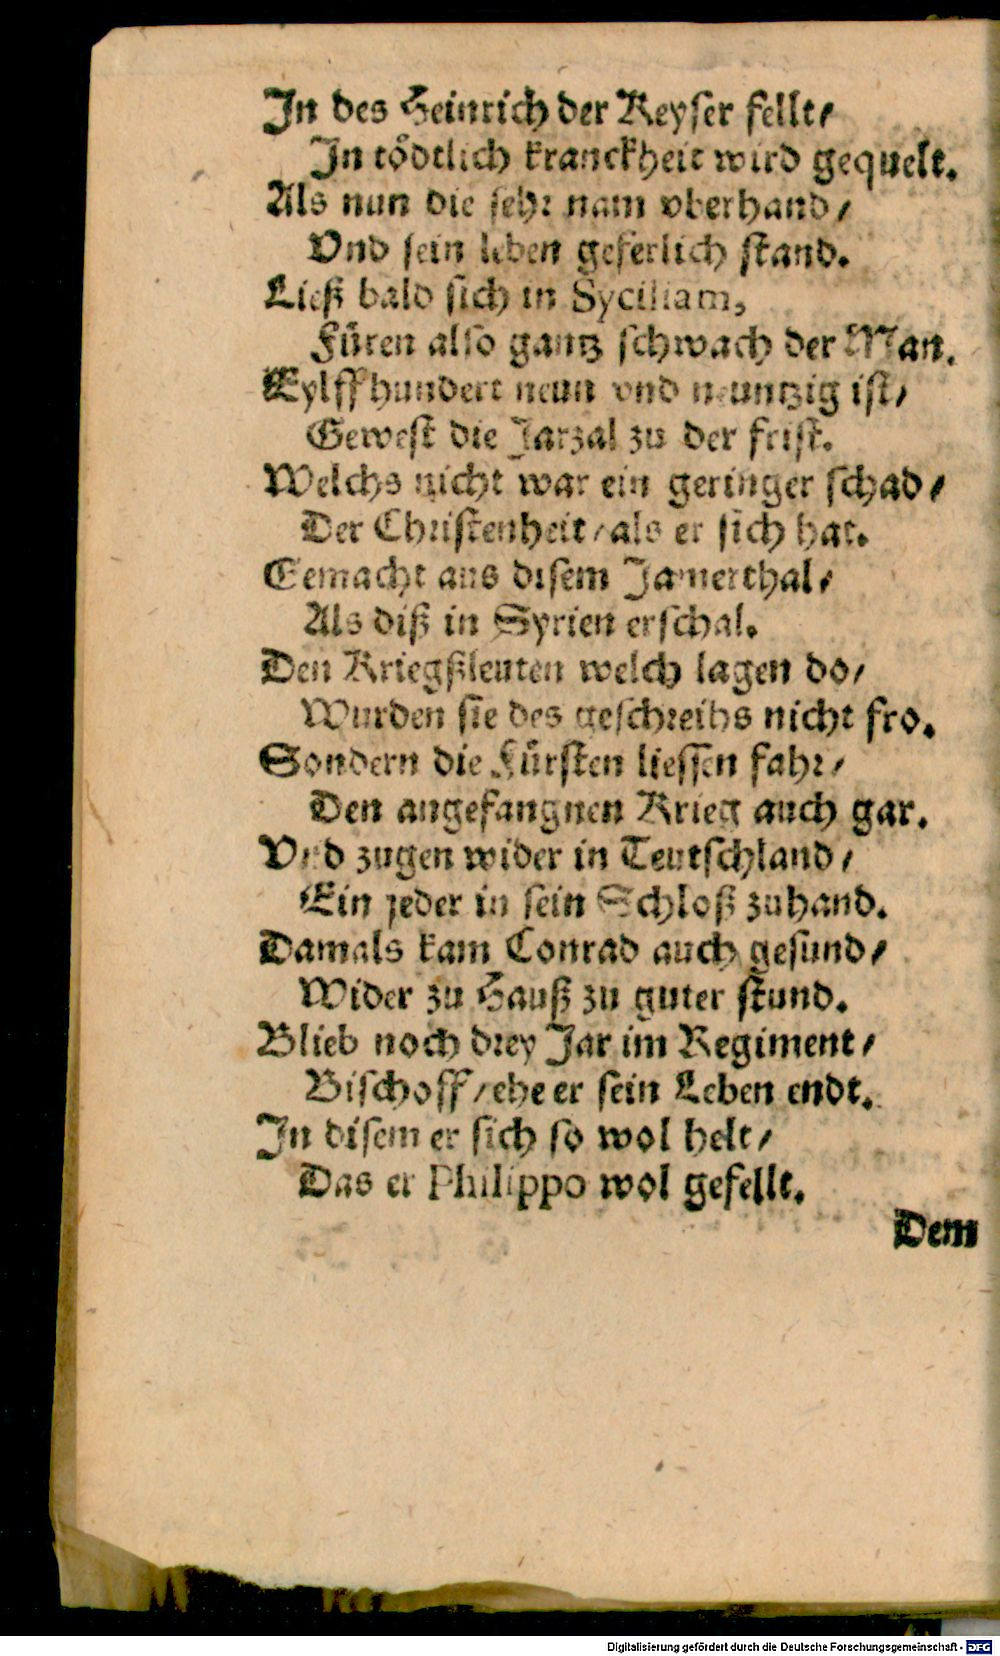 In des Heinrich der Keyser fellt/
In toͤdtlich kranckheit wird gequelt.
Als nun die sehr nam vberhand/
Vnd sein leben geferlich stand.
Ließ bald sich in Syciliam,
Fuͤren also gantz schwach der Man.
Eylffhundert neun vnd neuntzig ist/
Gewest die Jarzal zu der frist.
Welchs nicht war ein geringer schad/
Der Christenheit/als er sich hat.
Gemacht aus disem Jamerthal/
Als diß in Syrien erschal.
Den Kriegßleuten welch lagen do/
Wurden sie des geschreibs nicht fro.
Sondern die Fuͤrsten liessen fahr/
Den angefangnen Krieg auch gar.
Vnd zugen wider in Teutschland/
Ein jeder in sein Schloß zuhand.
Damals kam Conrad auch gesund/
Wider zu Hauß zu guter stund.
Blieb noch drey Jar im Regiment/
Bischoff/ehe er sein Leben endt.
In disem er sich so wol helt/
Das er Philippo wol gefellt.
Dem
Digitalisierung gefördert durch die Deutsche Forschungsgemeinschaft - DFG